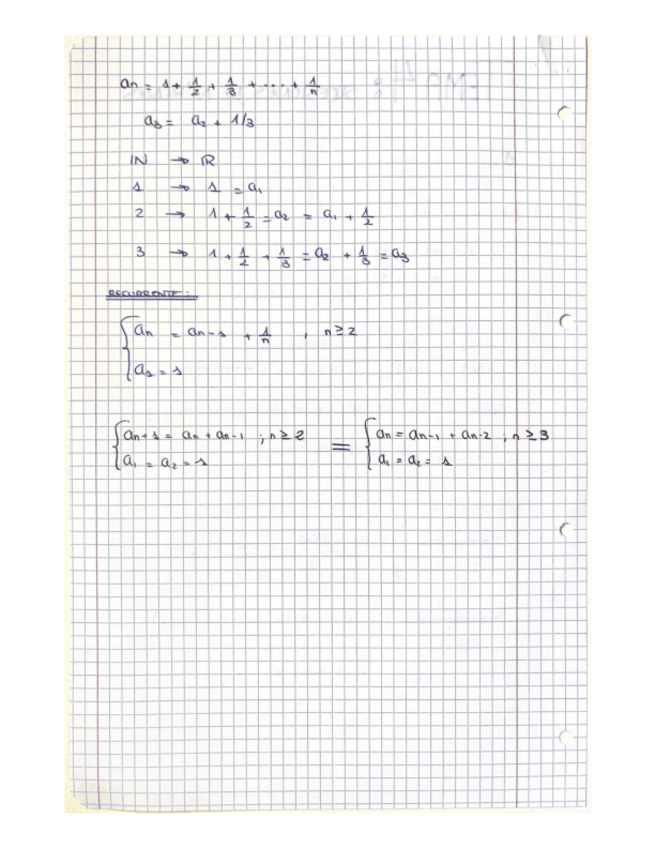 an = 1 + 1/2 + 1/3 + ... + 1/n
a3 = a2 + 1/3
IN → R
1 → 1 = a1
2 → 1 + 1/2 = a2 = a1 + 1/2
3 → 1 + 1/2 + 1/3 = a2 + 1/3 = a3
RECURRENTE:
{ an = an-1 + 1/n , n ≥ 2
a1 = 1
{ an+1 = an + an-1 ; n ≥ 2 = { an = an-1 + an-2 , n ≥ 3
a1 = a2 = 1 a1 = a2 = 1